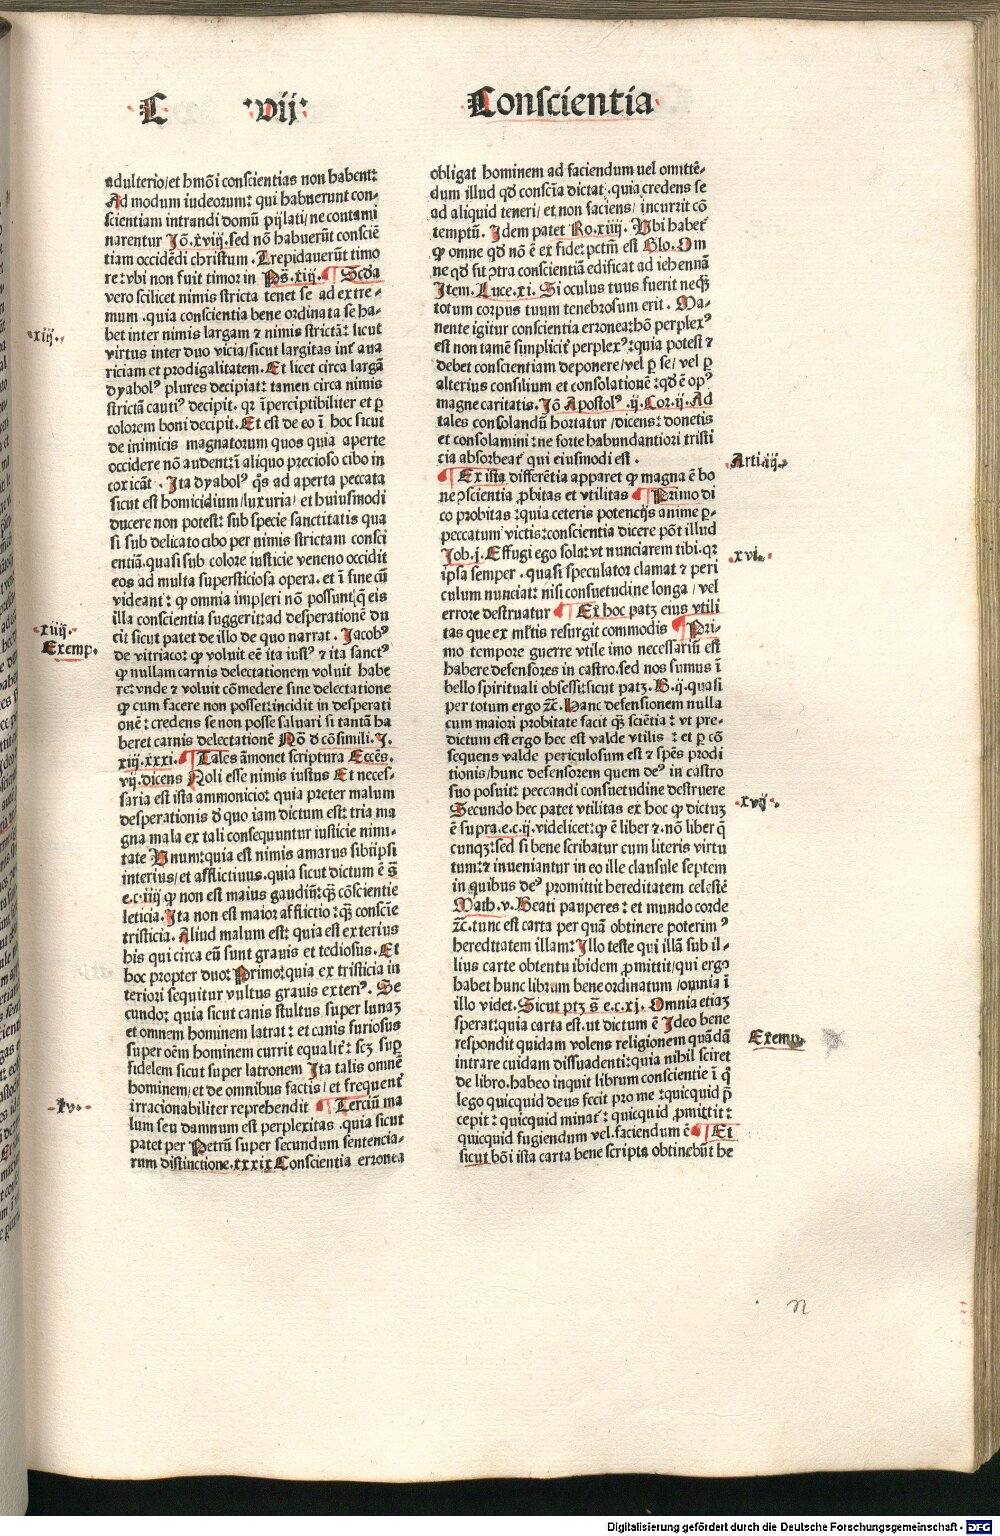 C .vij. Conscientia
adulterio/et hmōi conscientias non habent:
Ad modum iudeorum: qui habuerunt con-
scientiam intrandi domū pylati/ne contami
narentur Jō.xviij.sed nō habuerūt consciē
tiam occidēdi christum. Trepidauerūt timo
re:vbi non fuit timor in Ps̄.xiij. ¶ Scd̄a
vero scilicet nimis stricta tenet se ad extre-
mum.quia conscientia bene ordinata se ha-
bet inter nimis largam ⁊ nimis strictā: sicut
virtus inter duo vicia/sicut largitas int̄ aua
riciam et prodigalitatem. Et licet circa largā
dyabolꝰ plures decipiat: tamen circa nimis
strictā cautiꝰ decipit. qr īperciptibiliter et ꝑ
colorem boni decipit. Et est de eo ī hoc sicut
de inimicis magnatorum quos quia aperte
occidere nō audent:ī aliquo precioso cibo in
toxicāt. Ita dyabolꝰ q̄s ad aperta peccata
sicut est homicidium/luxuria/ et huiusmodi
ducere non potest: sub specie sanctitatis qua
si sub delicato cibo per nimis strictam consci
entiā.quasi sub colore iusticie veneno occidit
eos ad multa supersticiosa opera. et ī fine cū
videant: ꝙ omnia impleri nō possunt/q̄ eis
illa conscientia suggerit:ad desperationē du
cit sicut patet de illo de quo narrat. Jacobꝰ
de vitriaco: ꝙ voluit eē ita iustꝰ ⁊ ita sanctꝰ
ꝙ nullam carnis delectationem voluit habe
re:vnde ⁊ voluit cōmedere sine delectatione
ꝙ cum facere non posset:incidit in desperati
onē: credens se non posse saluari si tantā ha
beret carnis delectationē Nō d̄ cōsimili. J.
xiij.xxxi. ¶ Tales āmonet scriptura Ecces̄.
vij.dicens Noli esse nimis iustus Et neces-
saria est ista ammonicio: quia preter malum
desperationis d̄ quo iam dictum est: tria ma
gna mala ex tali consequuntur iusticie nimi-
tate Vnum:quia est nimis amarus sibiipsi
interius/et afflictiuus.quia sicut dictum ē s̄
e.c.iiij ꝙ non est maius gaudiū:q̄ȝ cōscientie
leticia. Ita non est maior afflictio:q̄ȝ consc̄ie
tristicia. Aliud malum est: quia est exterius
his qui circa eū sunt grauis et tediosus. Et
hoc propter duo: Primo:quia ex tristicia in
teriori sequitur vultus grauis exteriꝰ. Se
cundo: quia sicut canis stultus super lunaȝ
et omnem hominem latrat: et canis furiosus
super oēm hominem currit equalit̄: scȝ sup̄
fidelem sicut super latronem Ita talis omnē
hominem/et de omnibus factis/et frequent̄
irracionabiliter reprehendit ¶ Terciū ma
lum seu damnum est perplexitas.quia sicut
patet per Petrū super secundum sentencia-
rum distinctione.xxxix Conscientia erronea
obligat hominem ad faciendum vel omittē-
dum illud qd̄ consc̄ia dictat.quia credens se
ad aliquid teneri/ et non faciens/ incurrit cō
temptū. Idem patet Ro.xiiij. Vbi habet̄
ꝙ omne qd̄ nō ē ex fide:pctm̄ est Glo. Om
ne qd̄ fit ↄtra conscientiā edificat ad iehennā
Item. Luce.xi. Si oculus tuus fuerit neq̄ȝ
totum corpus tuum tenebrosum erit. Ma-
nente igitur conscientia erronea:hō perplexꝰ
est non tamē simplicit̄ perplexꝰ:quia potest ⁊
debet conscientiam deponere/vel ꝑ se/ vel ꝑ
alterius consilium et consolationē:qd̄ ē opꝰ
magne caritatis. Jō Apostolꝰ.ij.Cor.ij. Ad
tales consolandū hortatur/dicens: donetis
et consolamini:ne forte habundantiori tristi
cia absorbeat̄ qui eiusmodi est.
¶ Ex ista differētia apparet ꝙ magna ē bo
ne ↄscientia ꝓbitas et vtilitas ¶ Primo di
co probitas:quia ceteris potencijs anime ꝑ
peccatum victis:conscientia dicere pōt illud
Job.j. Effugi ego sola:vt nunciarem tibi.qr
ipsa semper.quasi speculator clamat ⁊ peri
culum nunciat: nisi consuetudine longa/ vel
errore destruatur ¶ Ex hoc patȝ eius vtili
tas que ex mltis resurgit commodis ¶ Pri-
mo tempore guerre vtile imo necessariū est
habere defensores in castro.sed nos sumus ī
bello spirituali obsessi:sicut patȝ. B.ij.quasi
per totum ergo ⁊c̄. Hanc defensionem nulla
cum maiori probitate facit q̄ȝ sciētia: vt pre-
dictum est ergo hec est valde vtilis: et ꝑ cō
sequens valde periculosum est ⁊ spēs prodi
tionis/hunc defensorem quem deꝰ in castro
suo posuit: peccandi consuetudine destruere
Secundo hec patet vtilitas ex hoc ꝙ dictuȝ
ē supra.e.c.ij.videlicet:ꝙ ē liber ⁊.nō liber q̄
cunqȝ:sed si bene scribatur cum literis virtu
tum:⁊ inueniantur in eo ille clausule septem
in quibus deꝰ promittit hereditatem celestē
Math.v. Beati pauperes: et mundo corde
⁊c̄.tunc est carta per quā obtinere poterimꝰ
hereditatem illam: Illo teste qui illā sub il-
lius carte obtentu ibidem ꝓmittit/qui ergo
habet hunc librum bene ordinatum/omnia ī
illo videt. Sicut ptȝ s̄ e.c.xj. Omnia etiaȝ
sperat:quia carta est.ut dictum ē Ideo bene
respondit quidam volens religionem quādā
intrare cuidam dissuadenti:quia nihil sciret
de libro.habeo inquit librum conscientie ī q̄
lego quicquid deus fecit pro me:quicquid p̄
cepit: quicquid minat̄: quicquid ꝓmittit:
quicquid fugiendum vel.faciendum ē ¶ Et
sicut hōi ista carta bene scripta obtinebūt he
xiij.
xiiij.
Exemp.
xv.
Arti.ij.
xvi.
xvij.
Exemp.
n
Digitalisierung gefördert durch die Deutsche Forschungsgemeinschaft - DFG